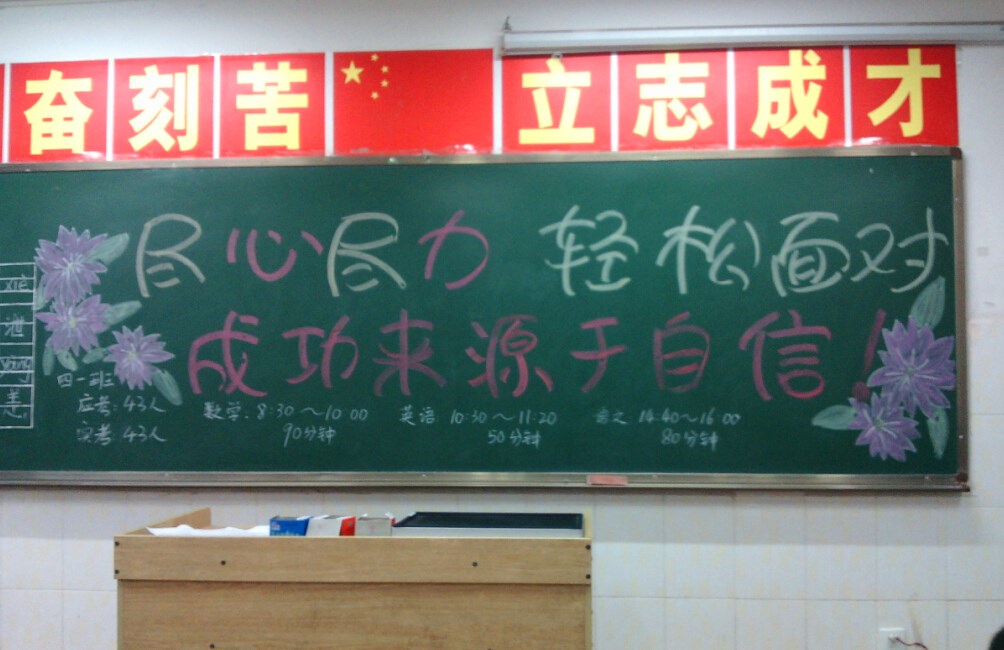 奋刻苦 立志成才
尽心尽力 轻松面对
成功来源于自信!
四一班
应考:43人
实考:43人
数学:8:30～10:00
90分钟
英语 10:30～11:20
50分钟
语文 14:40～16:00
80分钟